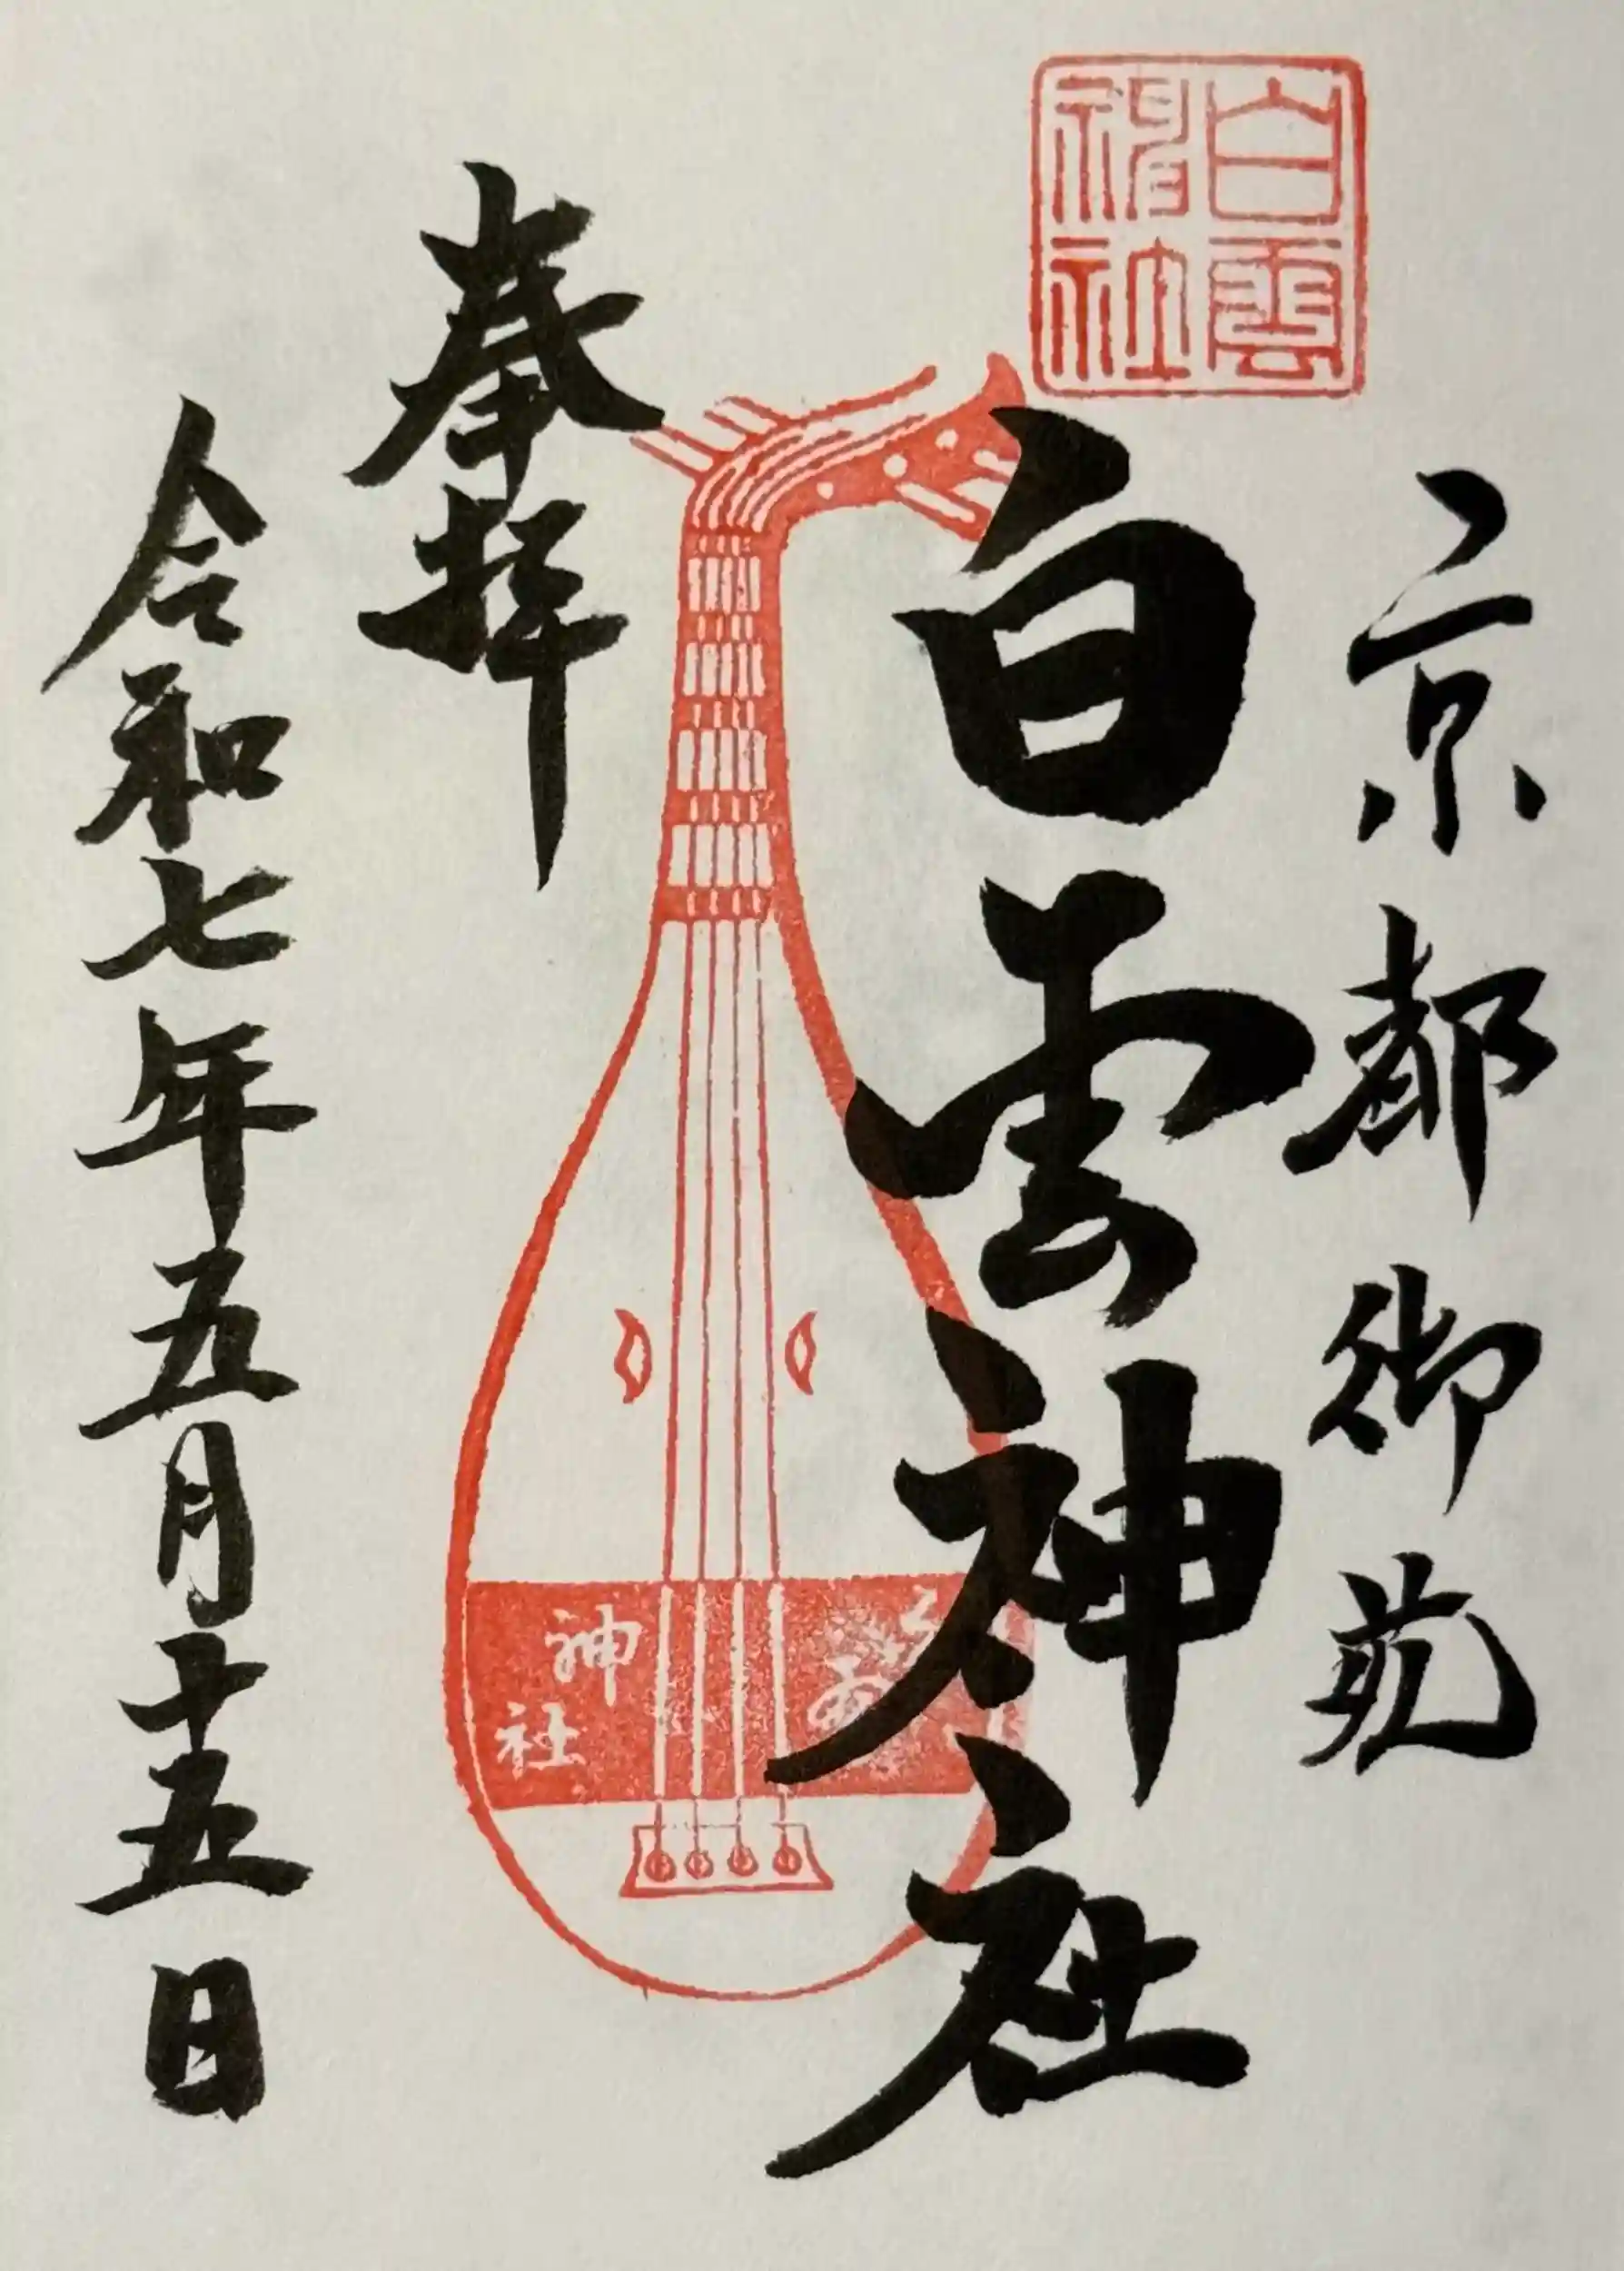 京都御苑
白雲
神社
白雲神社
奉拝
神社
令和七年五月十五日